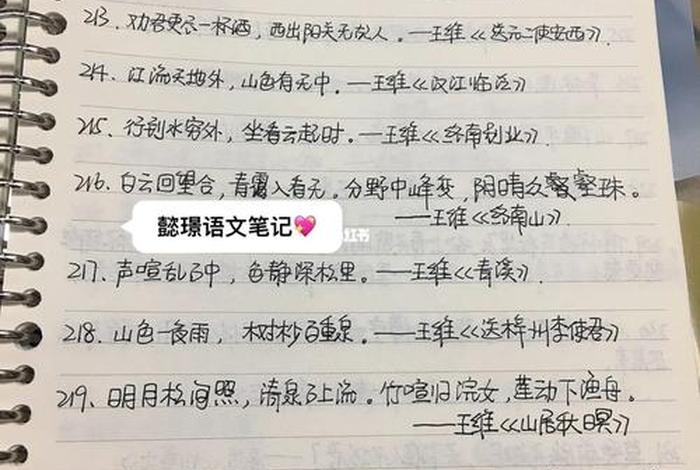 213、劝君更尽一杯酒，西出阳关无故人。——王维《送元二使安西》
214、江流天地外，山色有无中。——王维《汉江临泛》
215、行到水穷处，坐看云起时。——王维《终南别业》
216、白云回望合，青霭入看无。分野中峰变，阴晴众壑殊。
——王维《终南山》
懿璟语文笔记💖
217、声喧乱石中，色静深松里。——王维《青溪》
218、山色一夜雨，树杪百重泉。——王维《送梓州李使君》
219、明月松间照，清泉石上流。竹喧归浣女，莲动下渔舟。
——王维《山居秋暝》